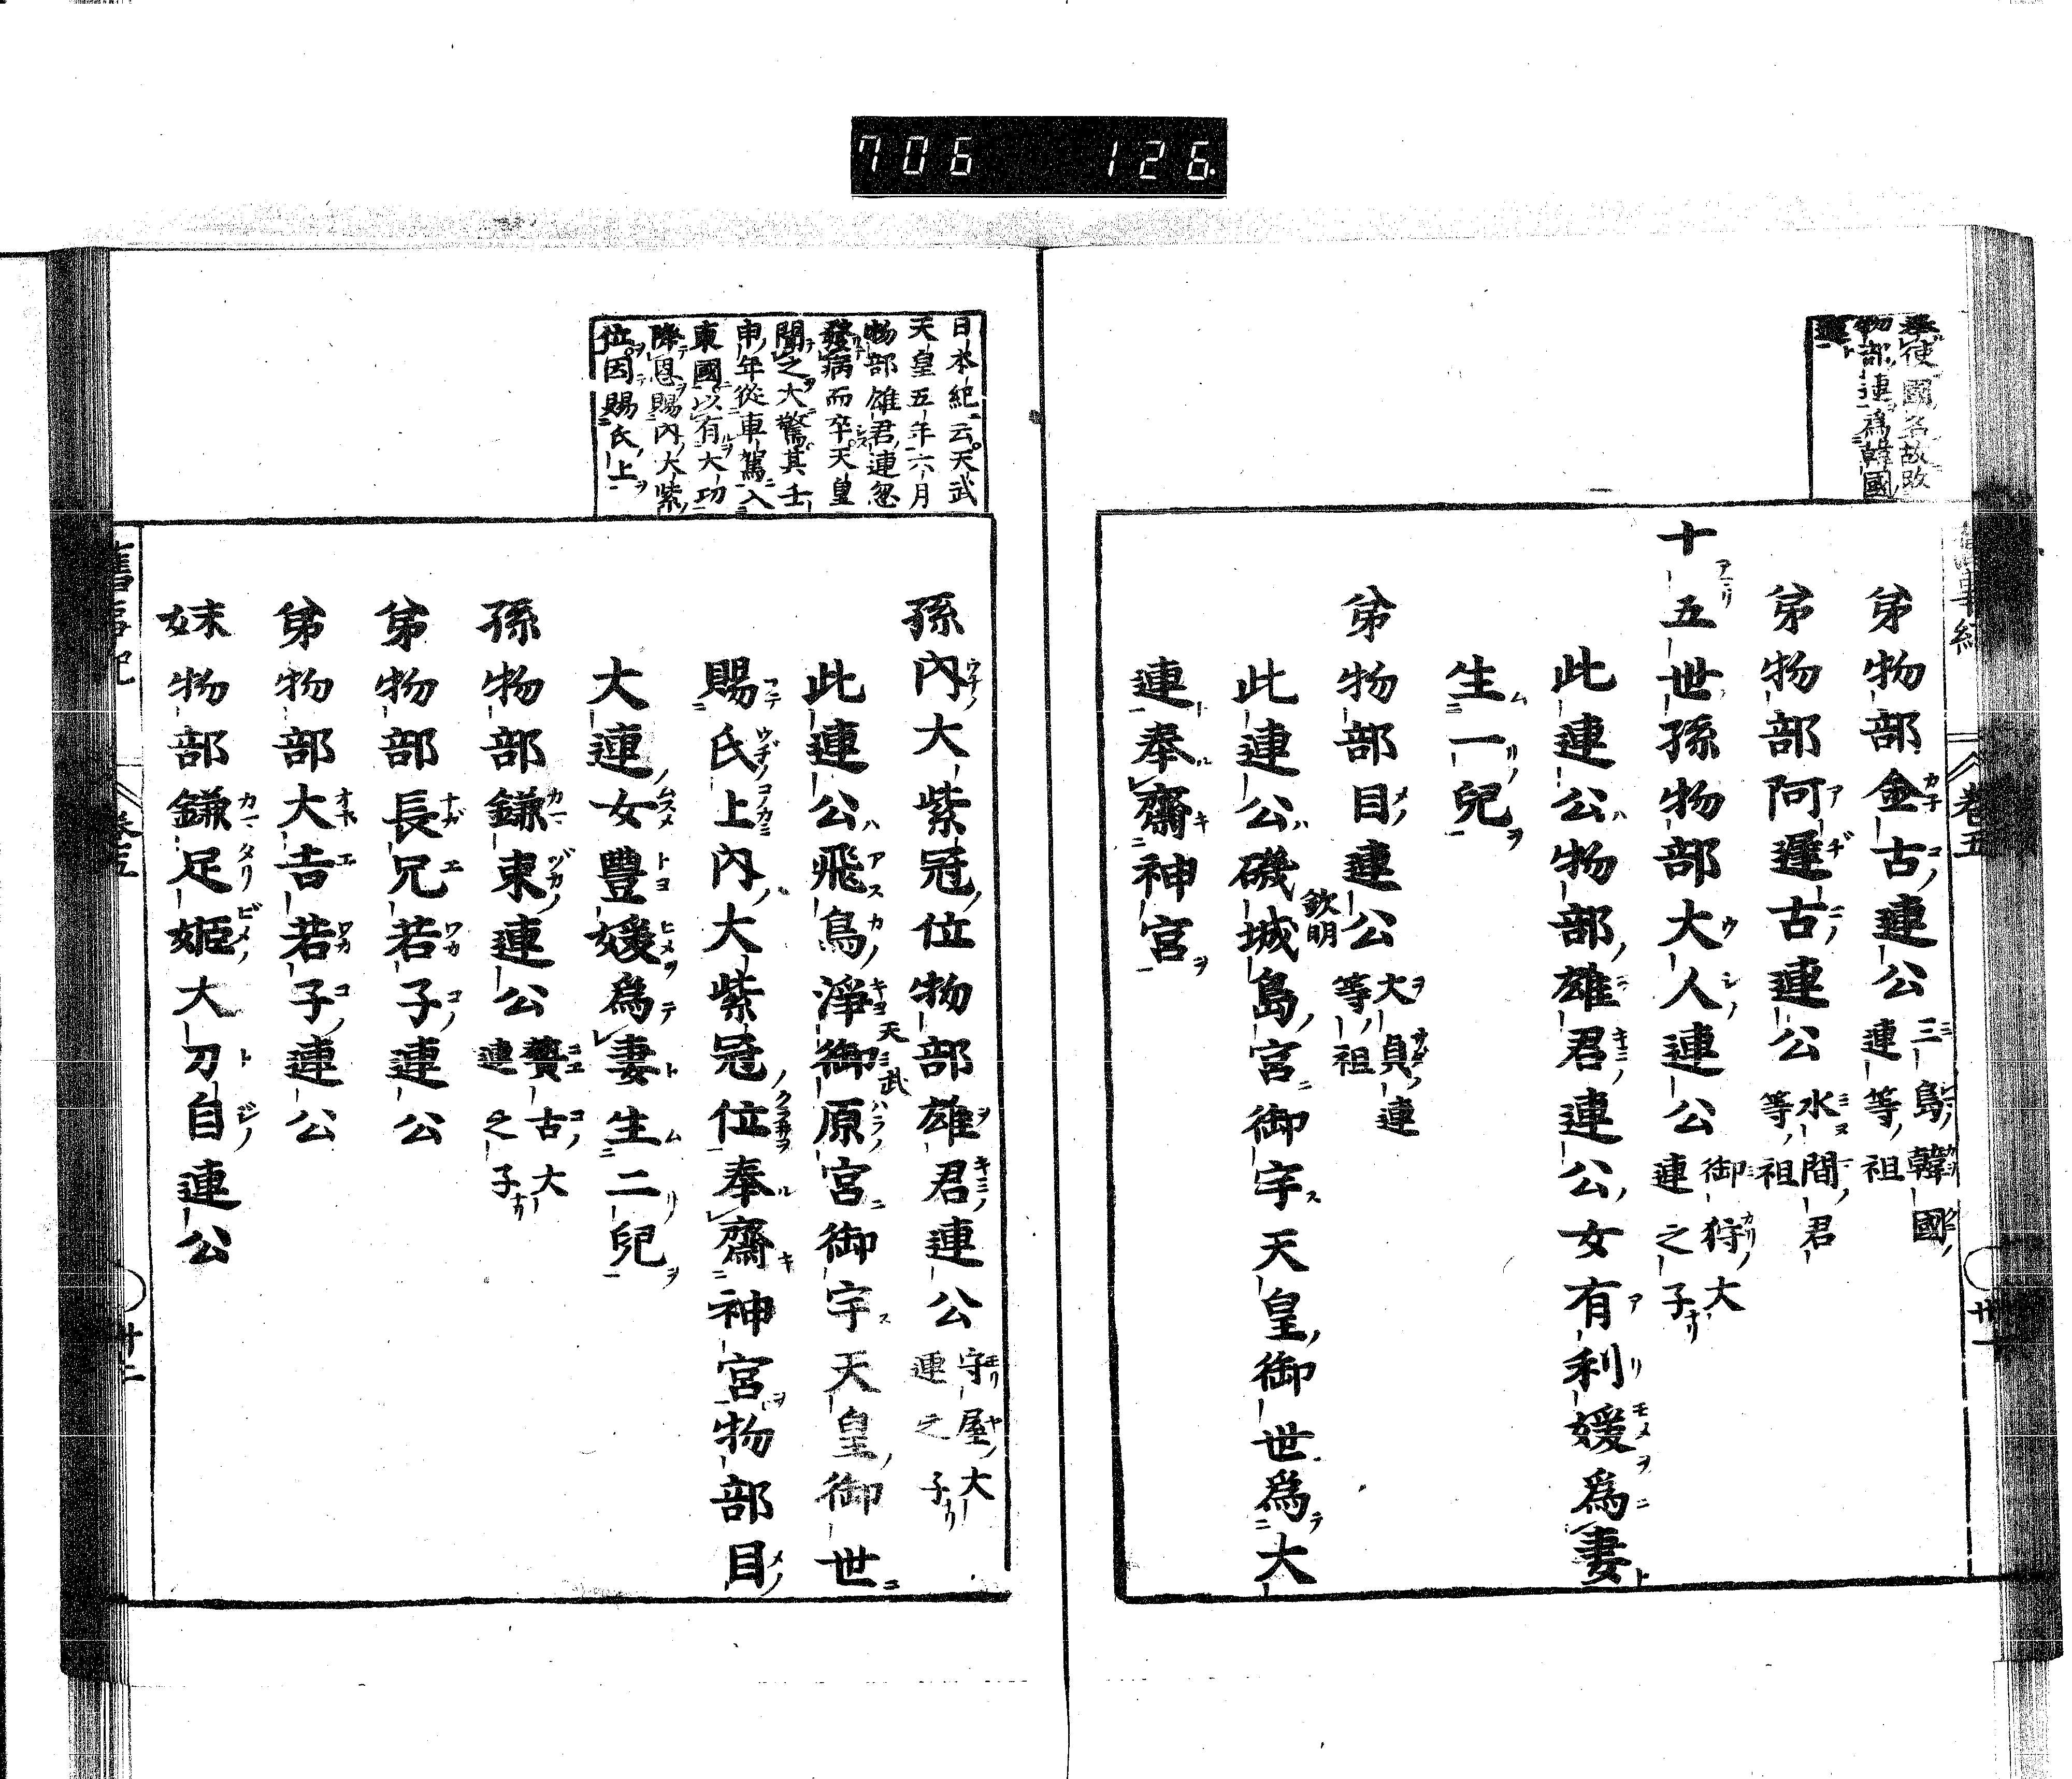 706 126
奉使國名故改
物部連爲韓國
連
弟物部金古連公 三島韓國連等祖
弟物部阿遲古連公 水間君等祖
十五世孫物部大人連公 御狩大連之子
此連公物部雄君連公女有利媛爲妻
生一兒
弟物部目連公 大貞連等祖
此連公磯城島宮御宇天皇御世爲大
欽明
連奉齋神宮
卷五
廿一
日本紀云天武
天皇五年六月
物部雄君連忽
發病而卒天皇
聞之大驚其壬
申年從車駕入
東國以有大功
降恩賜內大紫
位因賜氏上
孫內大紫冠位物部雄君連公 守屋大連之子
此連公飛鳥淨御原宮御宇天皇御世
天武
賜氏上內大紫冠位奉齋神宮物部目
大連女豐媛爲妻生二兒
孫物部鎌束連公 贄古大連之子
弟物部長兄若子連公
弟物部大吉若子連公
妹物部鎌足姬大刀自連公
舊事紀
卷五
廿二